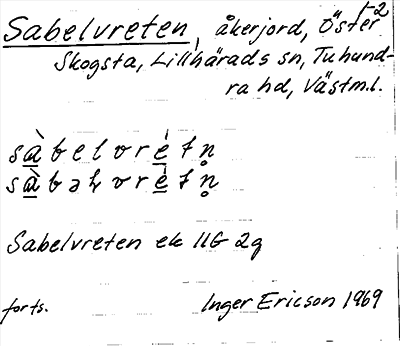 1-2
Sabelvreten, åkerjord, Öster
Skogsta, Lillhärads sn, Tuhund-
ra hd, Västm.l.
sàbelvrétn̥
sàbəlvrétn̥
Sabelvreten ek 11G 2g
forts. Inger Ericson 1969